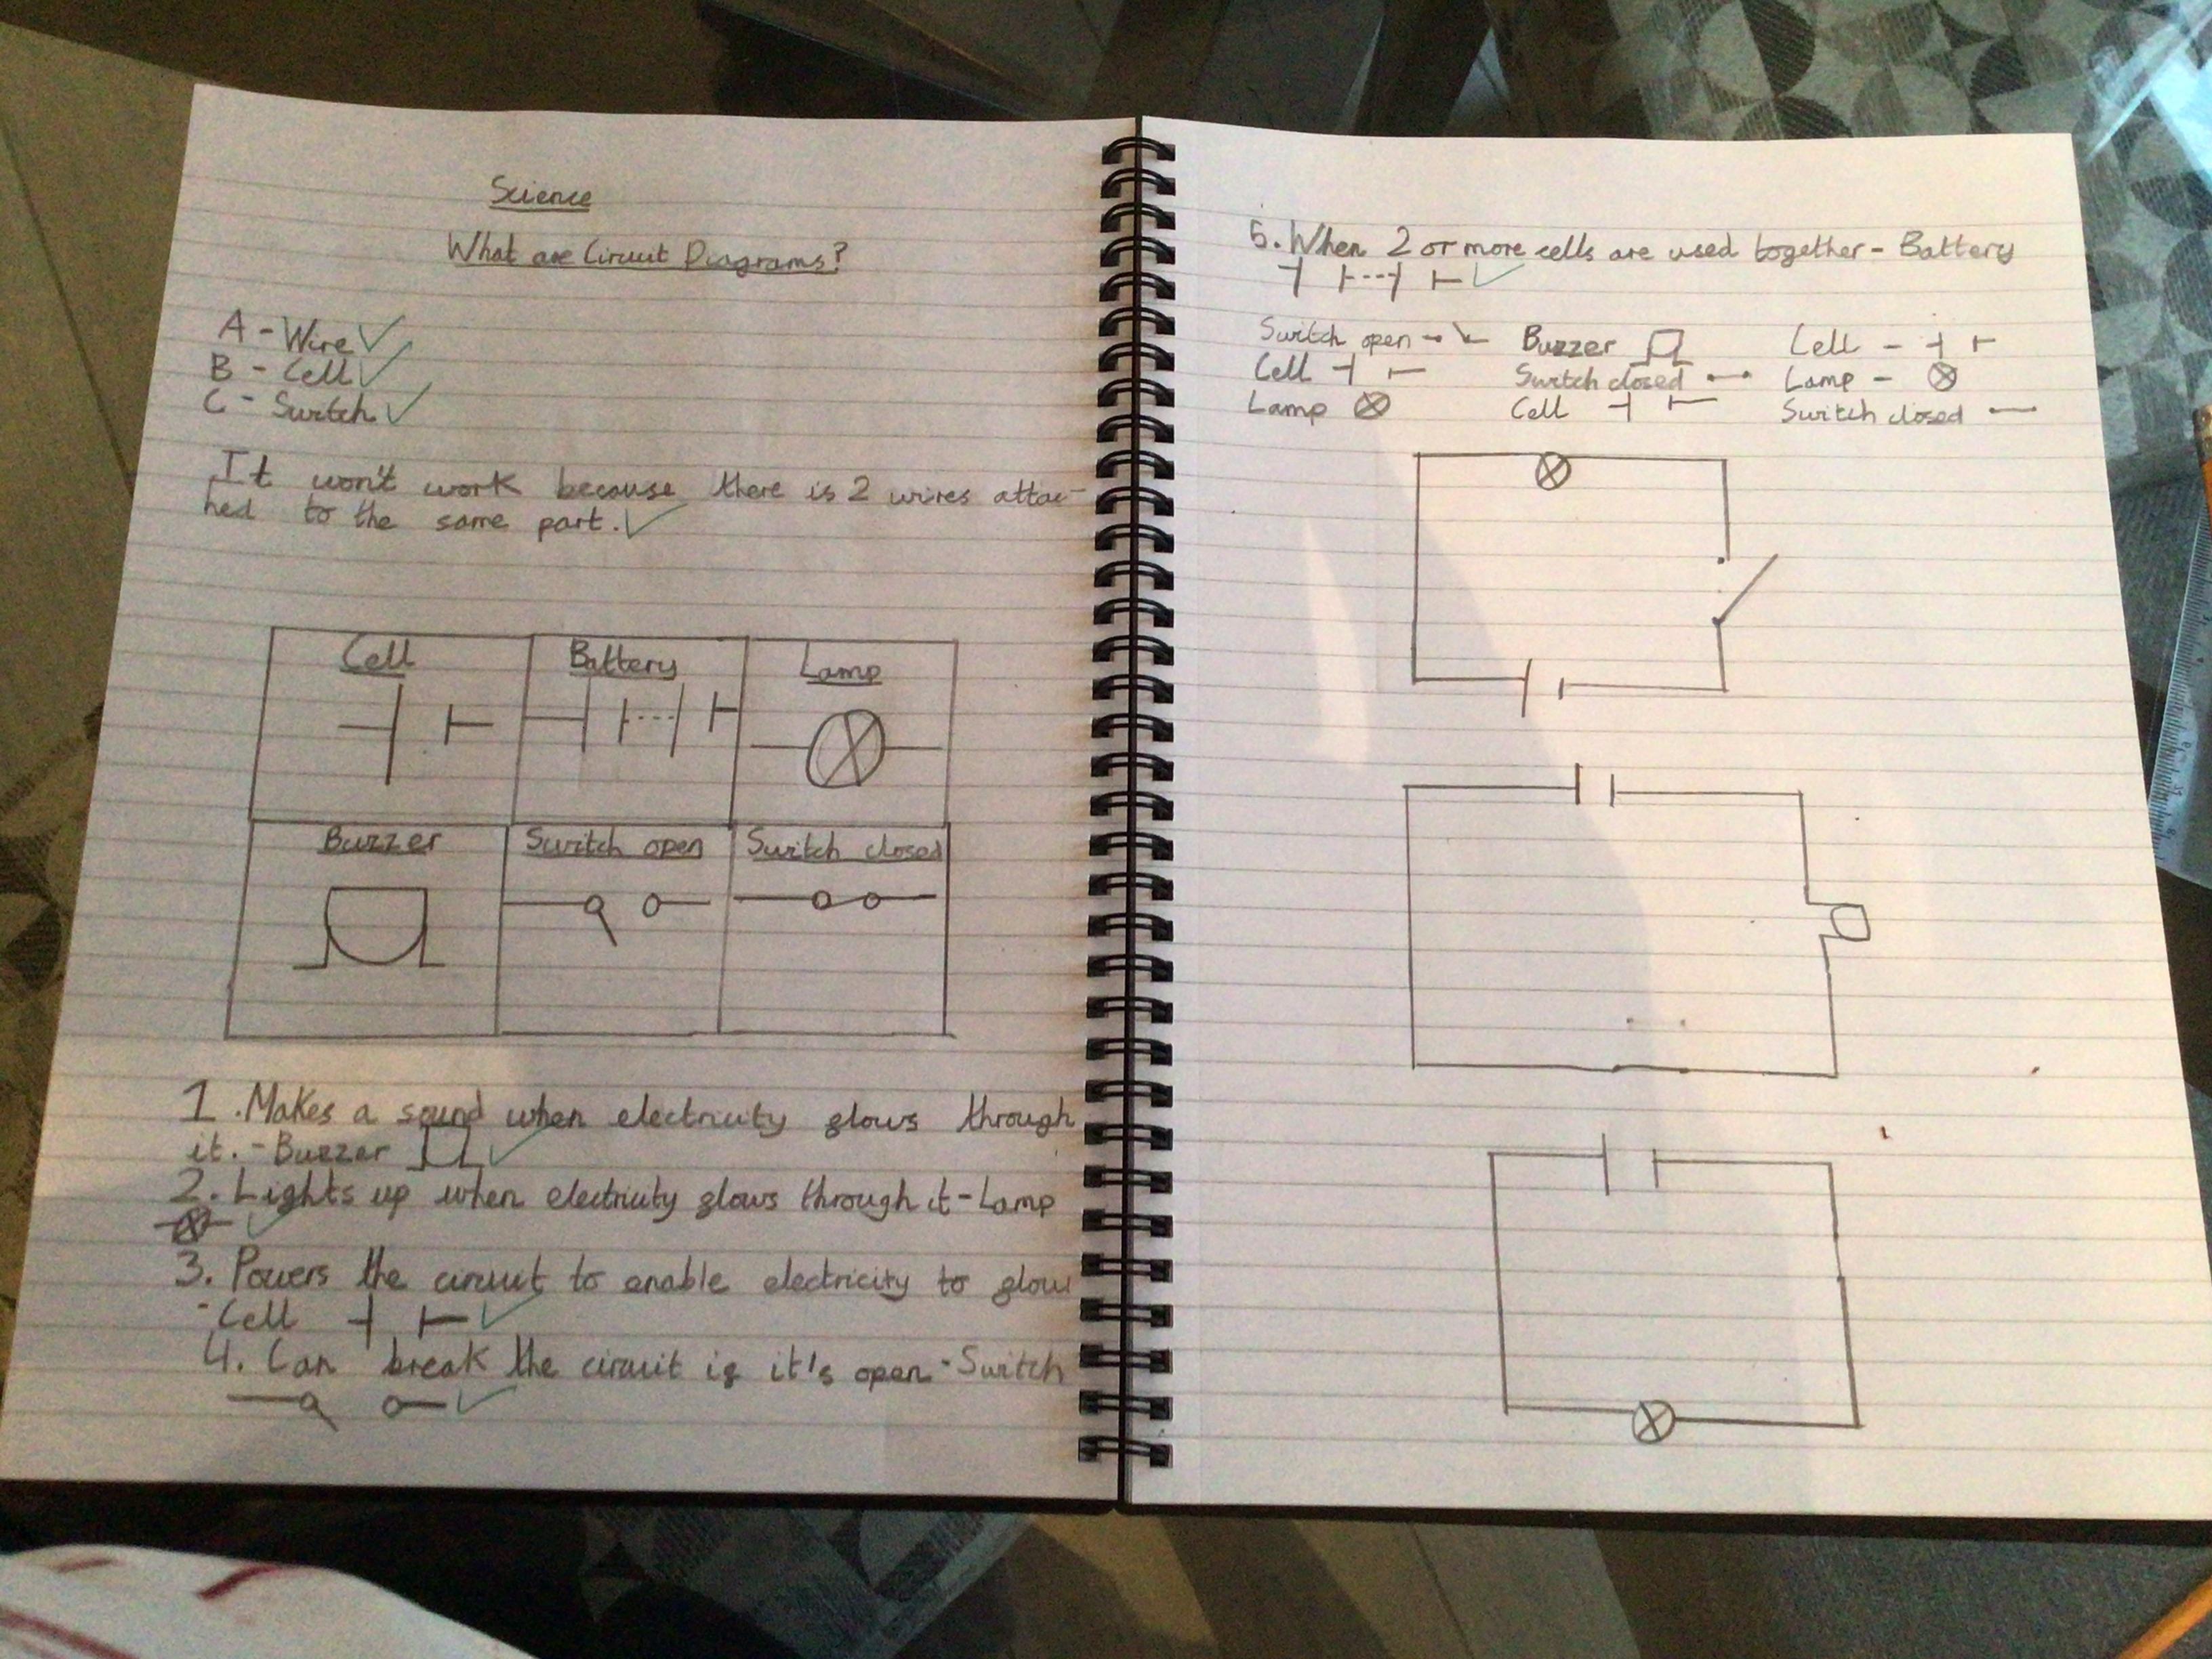 Science
What are Circuit Diagrams?
A - Wire
B - Cell
C - Switch
It won't work because there is 2 wires attac-
hed to the same part.
Cell Battery Lamp
Buzzer Switch open Switch closed
1. Makes a sound when electricity glows through
it. - Buzzer
2. Lights up when electricity glows through it - Lamp
3. Powers the circuit to enable electricity to glow
- Cell
4. Can break the circuit if it's open - Switch
5. When 2 or more cells are used together - Battery
Switch open - Buzzer Cell -
Cell Switch closed Lamp -
Lamp Cell Switch closed